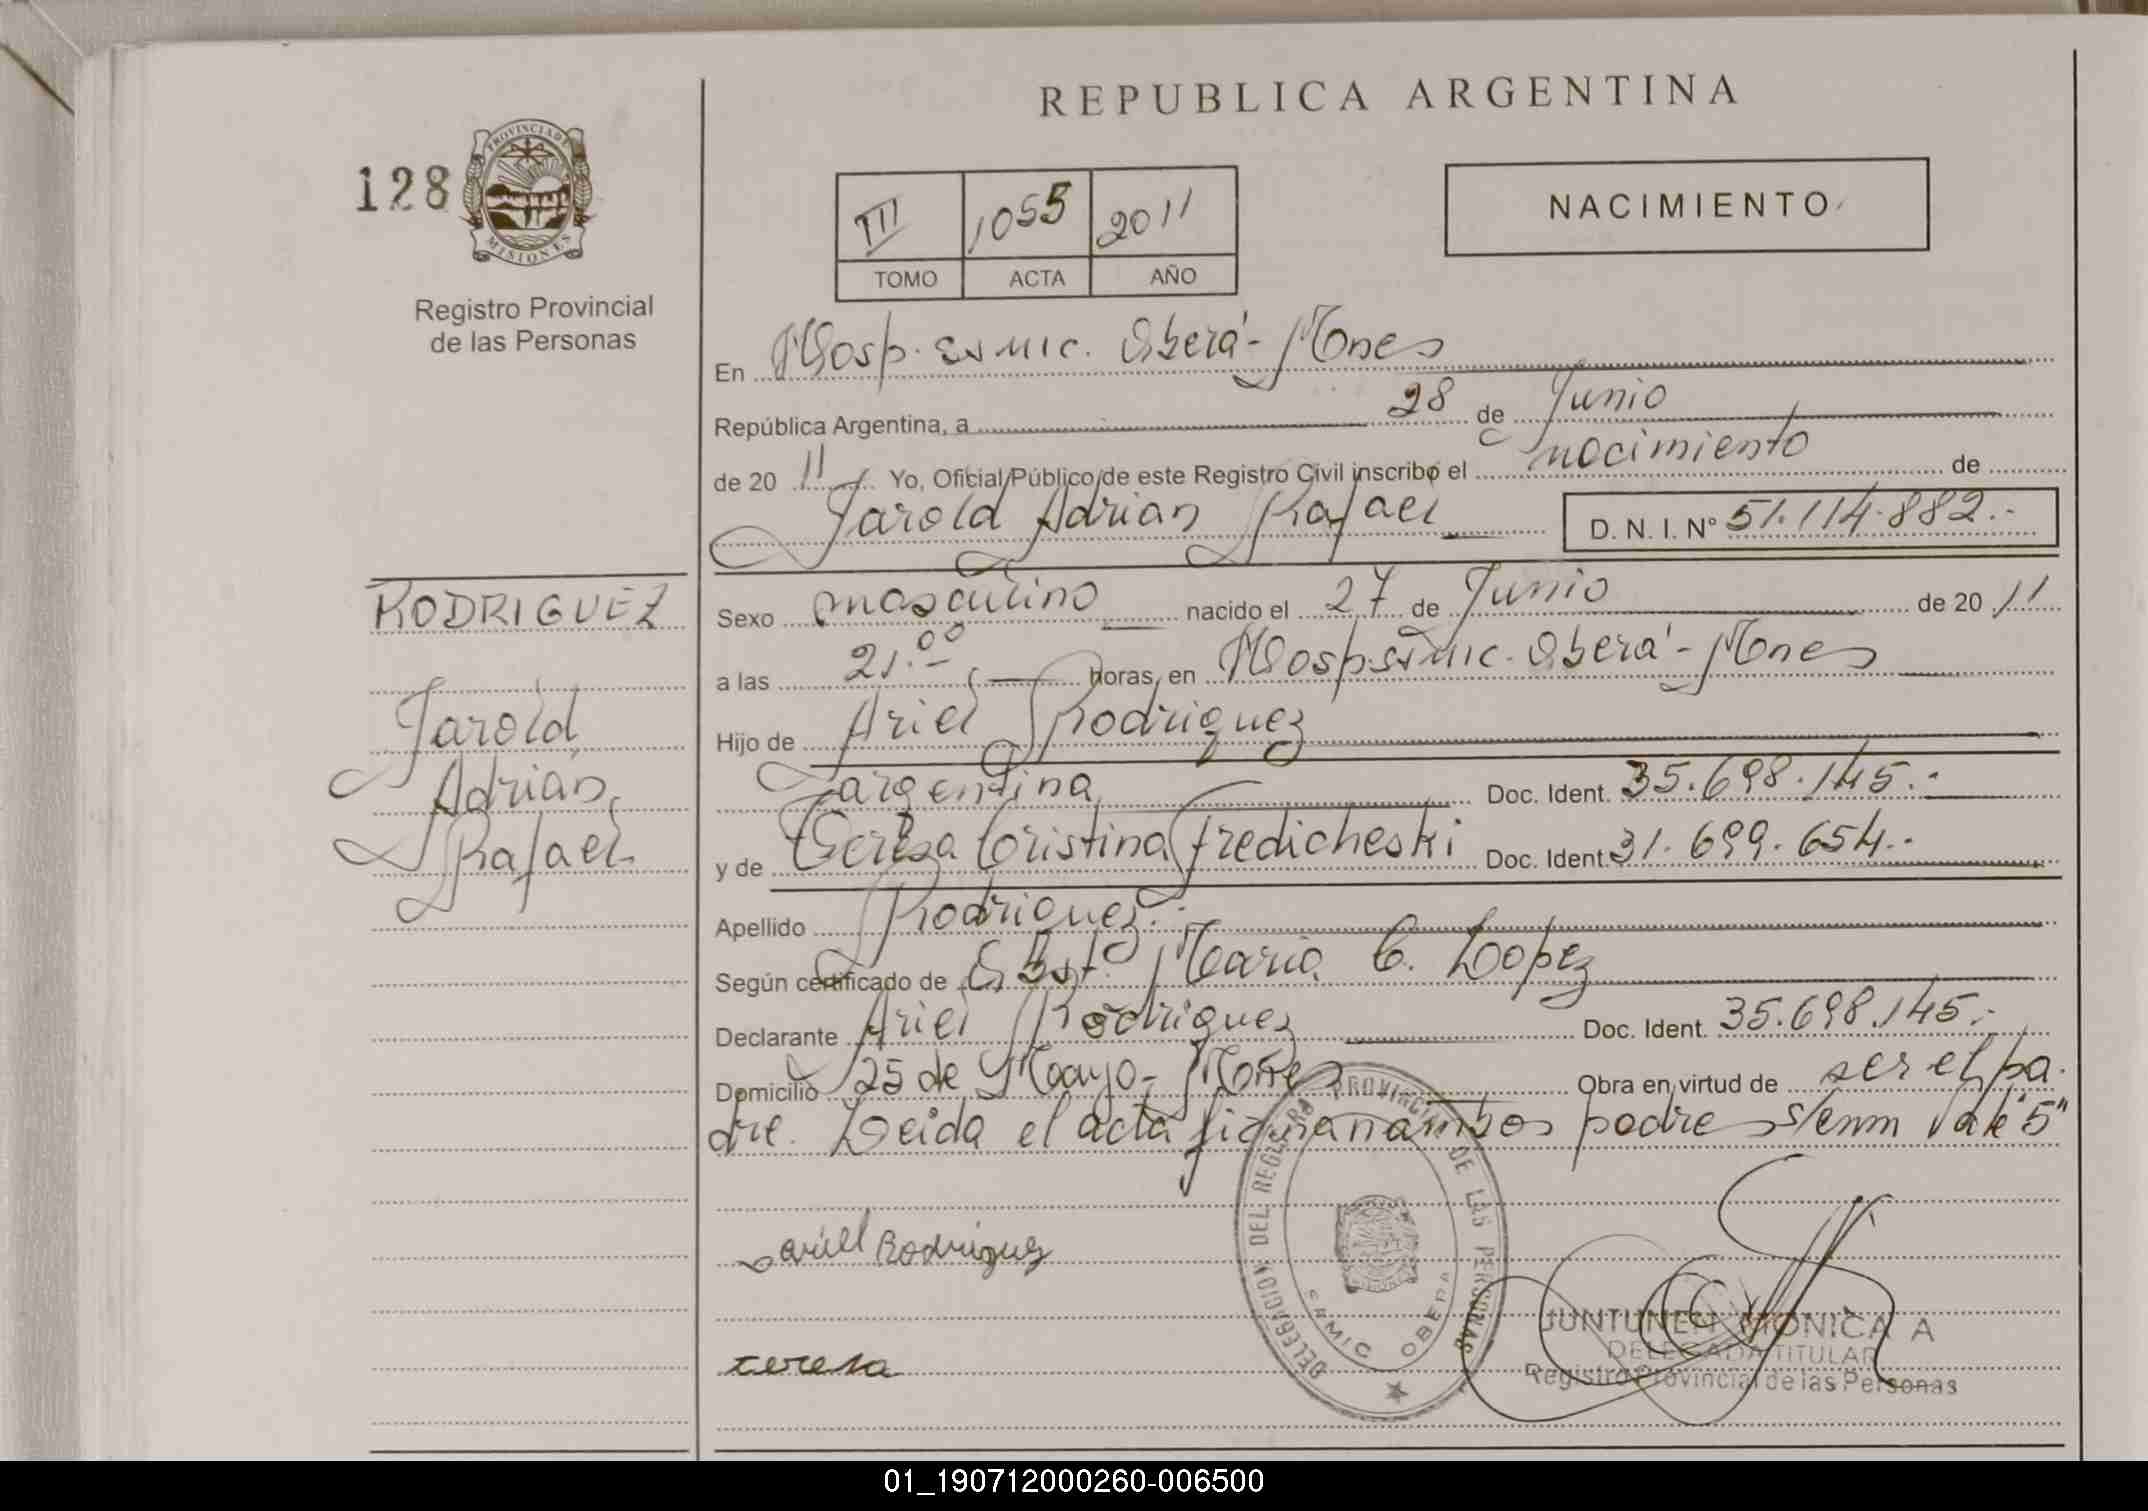 REPUBLICA ARGENTINA
128
PROVINCIA DE MISIONES
Registro Provincial
de las Personas
III 1055 2011
TOMO ACTA AÑO
NACIMIENTO
En Hosp. Esmic. Oberá - Mnes
República Argentina, a 28 de Junio
de 20 11 Yo, Oficial Público de este Registro Civil inscribo el nacimiento de
Jarold Adrian Rafael D. N. I. Nº 51.114.882.-
RODRIGUEZ
Jarold
Adrian
Rafael
Sexo masculino nacido el 27 de Junio de 20 11
a las 21.00 horas, en Hosp. Esmic. Oberá - Mnes
Hijo de Ariel Rodriguez
argentina Doc. Ident. 35.698.145.-
y de Teresa Cristina Fredicheski Doc. Ident. 31.699.654.-
Apellido Rodriguez.-
Según certificado de Obst. Maria C. Lopez
Declarante Ariel Rodriguez Doc. Ident. 35.698.145.-
Domicilio 25 de Mayo - Mnes Obra en virtud de ser el pa-
dre. Leida el acta firman ambos padres s/enm Vale "5"
DELEGACION DEL REGISTRO PROVINCIAL DE LAS PERSONAS
OBERA
ariel Rodriguez
teresa
JUNTUNEN MONICA A
DELEGADA TITULAR
Registro Provincial de las Personas
01_190712000260-006500